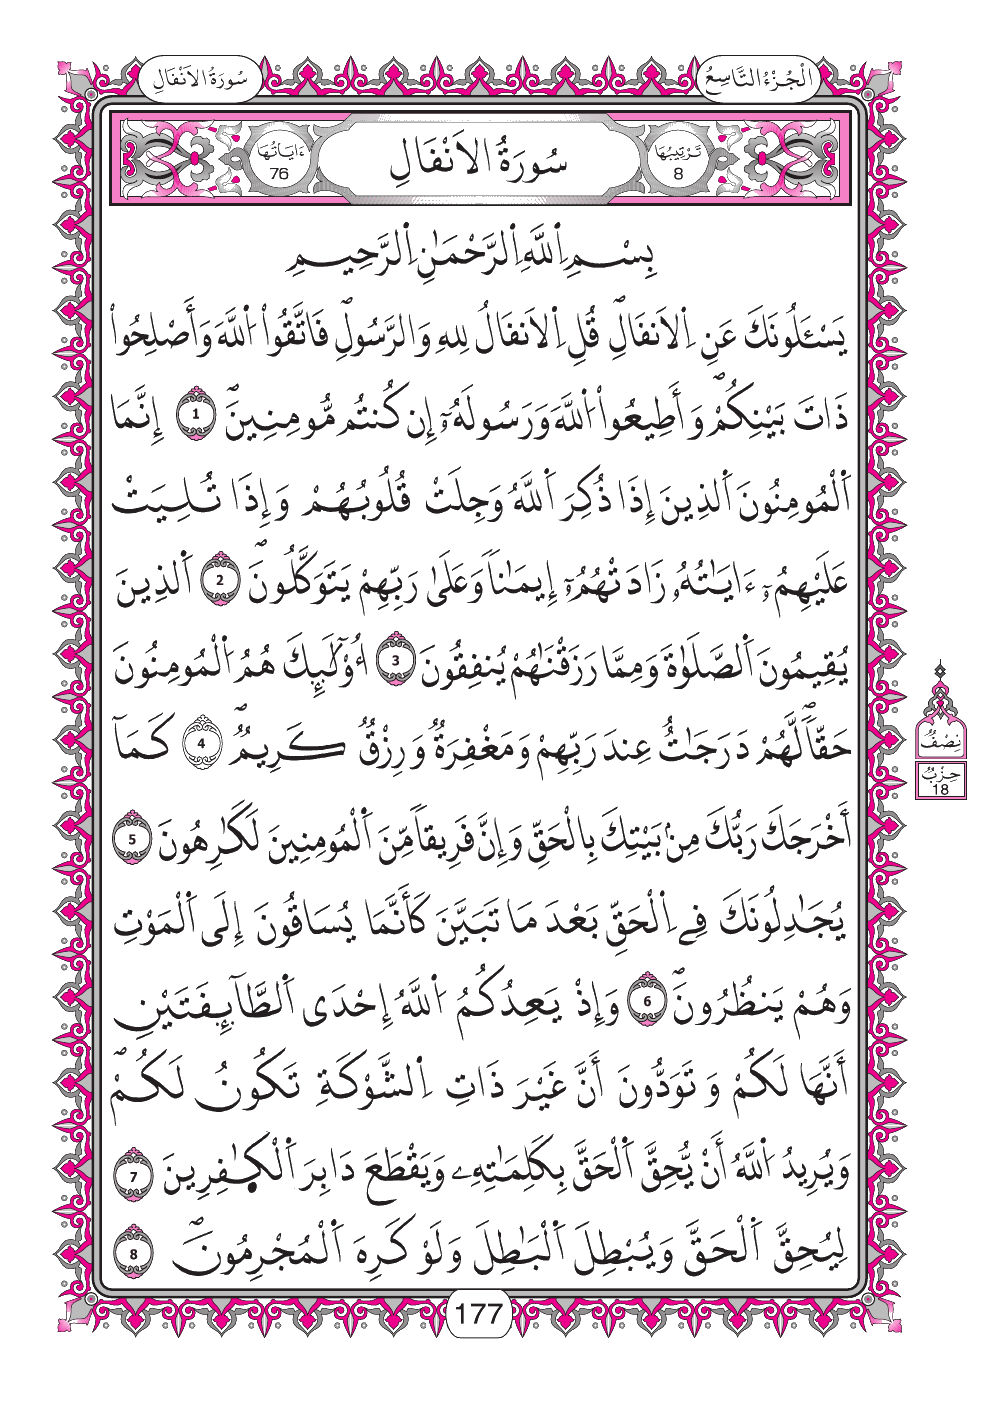 الْجُزْءُ التَّاسِعُ
سُورَةُ الاَنْفَالِ
تَرْتِيبُهَا 8
سُورَةُ الاَنْفَالِ
ءَايَاتُهَا 76
بِسْمِ اِ۬للَّهِ اِ۬لرَّحْمَٰنِ اِ۬لرَّحِيمِ
يَسْـَٔلُونَكَ عَنِ اِ۬لَانفَالِۖ قُلِ اِ۬لَانفَالُ لِلهِ وَالرَّسُولِۖ فَاتَّقُواْ اُ۬للَّهَ وَأَصْلِحُواْ
ذَاتَ بَيْنِكُمْۖ وَأَطِيعُواْ اُ۬للَّهَ وَرَسُولَهُۥٓ إِن كُنتُم مُّومِنِينَۖ 1 إِنَّمَا
اَ۬لْمُومِنُونَ اَ۬لذِينَ إِذَا ذُكِرَ اَ۬للَّهُ وَجِلَتْ قُلُوبُهُمْ وَإِذَا تُلِيَتْ
عَلَيْهِمُۥٓ ءَايَٰتُهُۥ زَادَتْهُمُۥٓ إِيمَٰناٗ وَعَلَىٰ رَبِّهِمْ يَتَوَكَّلُونَۖ 2 اَ۬لذِينَ
يُقِيمُونَ اَ۬لصَّلَوٰةَ وَمِمَّا رَزَقْنَٰهُمْ يُنفِقُونَ 3 أُوْلَٰٓئِكَ هُمُ اُ۬لْمُومِنُونَ
حَقّاٗۖ لَّهُمْ دَرَجَٰتٌ عِندَ رَبِّهِمْ وَمَغْفِرَةٞ وَرِزْقٞ كَرِيمٞۖ 4 كَمَآ
أَخْرَجَكَ رَبُّكَ مِنۢ بَيْتِكَ بِالْحَقِّ وَإِنَّ فَرِيقاٗ مِّنَ اَ۬لْمُومِنِينَ لَكَٰرِهُونَ 5
يُجَٰدِلُونَكَ فِے اِ۬لْحَقِّ بَعْدَ مَا تَبَيَّنَ كَأَنَّمَا يُسَاقُونَ إِلَى اَ۬لْمَوْتِ
وَهُمْ يَنظُرُونَۖ 6 وَإِذْ يَعِدُكُمُ اُ۬للَّهُ إِحْدَى اَ۬لطَّآئِفَتَيْنِ
أَنَّهَا لَكُمْ وَتَوَدُّونَ أَنَّ غَيْرَ ذَاتِ اِ۬لشَّوْكَةِ تَكُونُ لَكُمْۖ
وَيُرِيدُ اُ۬للَّهُ أَنْ يُّحِقَّ اَ۬لْحَقَّ بِكَلِمَٰتِهِۦ وَيَقْطَعَ دَابِرَ اَ۬لْكٰ۪فِرِينَ 7
لِيُحِقَّ اَ۬لْحَقَّ وَيُبْطِلَ اَ۬لْبَٰطِلَ وَلَوْ كَرِهَ اَ۬لْمُجْرِمُونَۖ 8
نِصْفُ
حِزْبُ
18
177